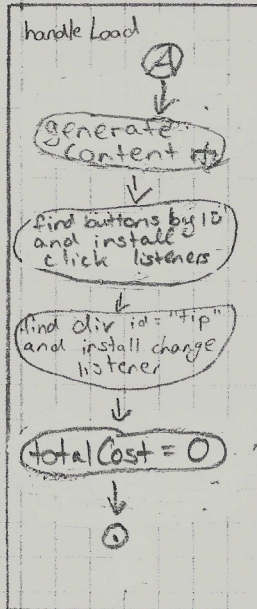 handle Load
A
generate
Content
find buttons by ID
and install
click listeners
find div id = "tip"
and install change
listener
total Cost = 0